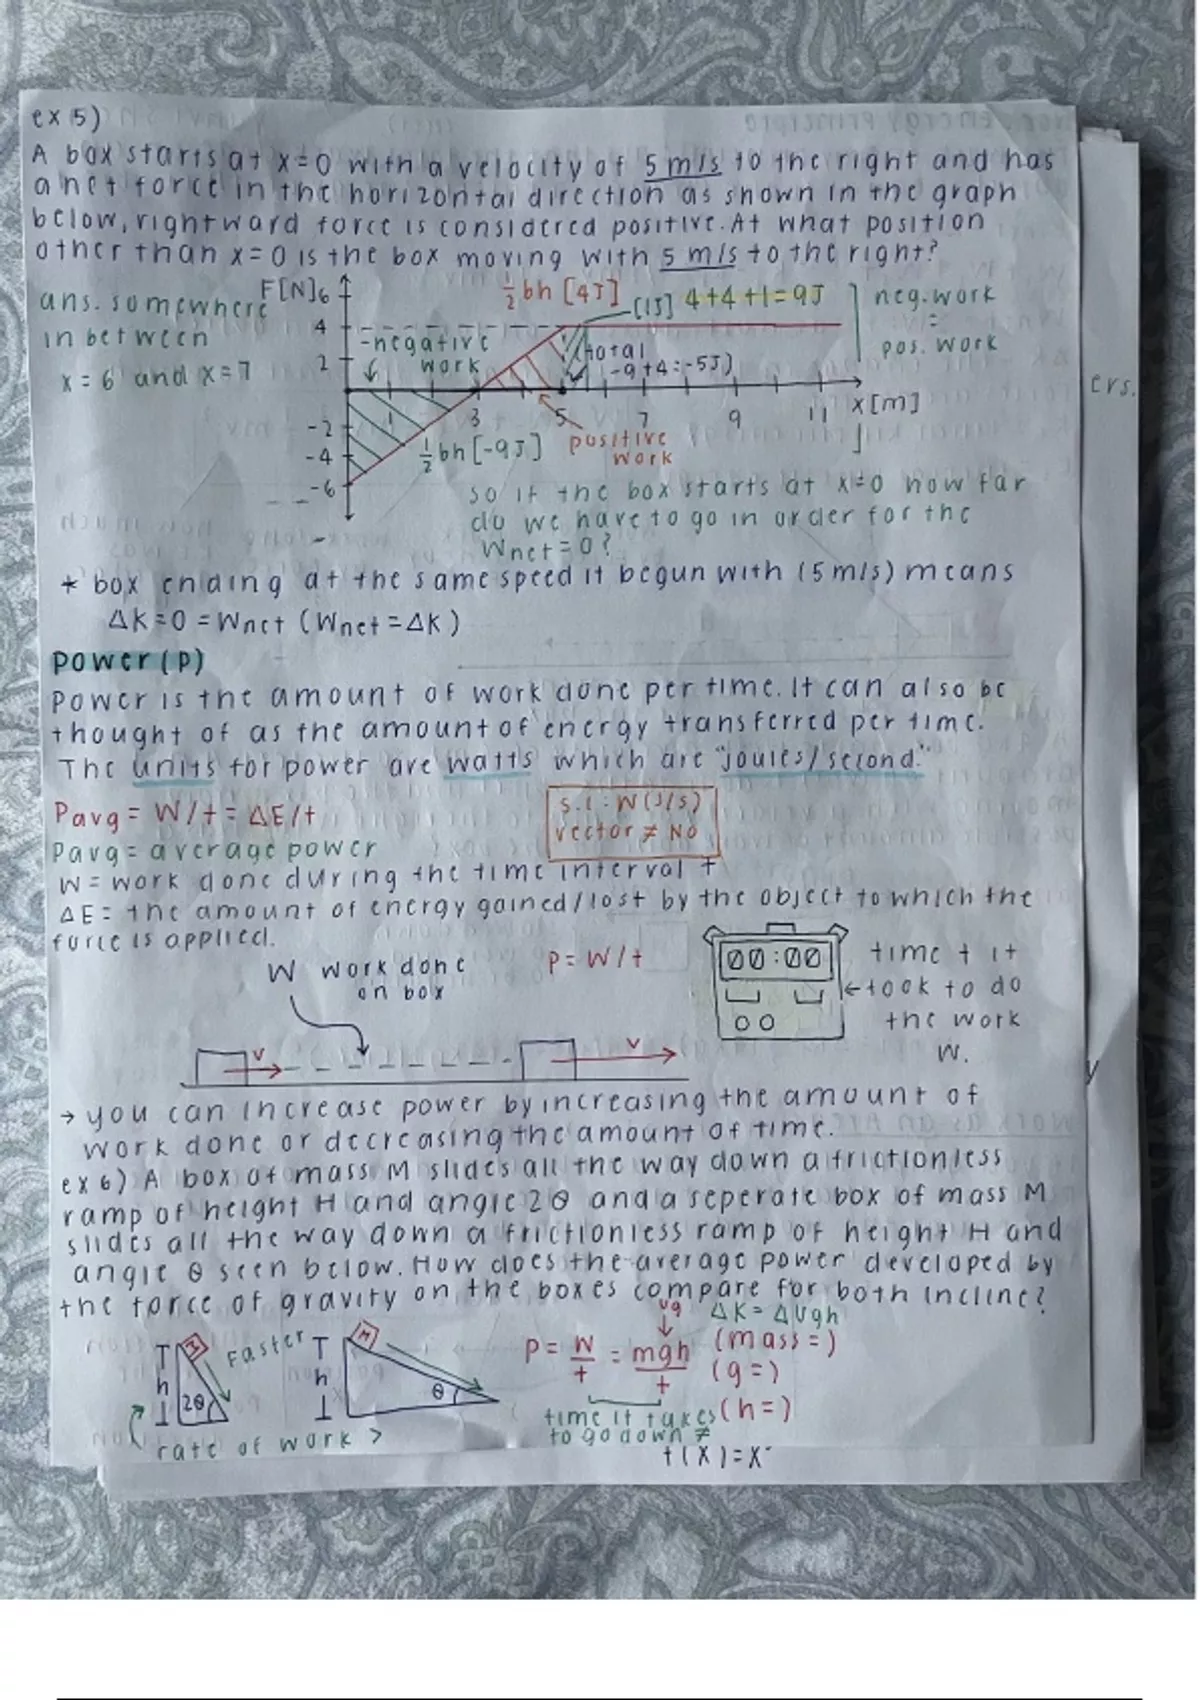 ex 5)
A box starts at x=0 with a velocity of 5 m/s to the right and has
a net force in the horizontal direction as shown in the graph
below, rightward force is considered positive. At what position
other than x=0 is the box moving with 5 m/s to the right?
ans. somewhere
in between
x = 6 and x = 7
F[N]
6
4
2
-2
-4
-6
1
3
5
7
9
11
x[m]
½bh [4J]
[1J] 4+4+1=9J
neg. work
=
pos. work
-negative
work
total
-9+4=-5J)
½bh [-9J]
positive
work
so if the box starts at x=0 how far
do we have to go in order for the
Wnet=0?
* box ending at the same speed it begun with (5m/s) means
ΔK=0 = Wnet (Wnet=ΔK)
power(P)
Power is the amount of work done per time. It can also be
thought of as the amount of energy transferred per time.
The units for power are watts which are "joules/second."
Pavg = W/t = ΔE/t
s.i: W(J/s)
vector ≠ No
Pavg = average power
W = work done during the time interval t
ΔE = the amount of energy gained/lost by the object to which the
force is applied.
W work done
on box
P = W/t
00:00
time t it
← took to do
the work
W.
v
v
→ you can increase power by increasing the amount of
work done or decreasing the amount of time.
ex 6) A box of mass M slides all the way down a frictionless
ramp of height H and angle 2θ and a seperate box of mass M
slides all the way down a frictionless ramp of height H and
angle θ seen below. How does the average power developed by
the force of gravity on the boxes compare for both incline?
M
Faster
h
2θ
M
h
θ
rate of work >
P = W/t = mgh/t
ug
ΔK = ΔUgh
(mass =)
(g =)
(h =)
time it takes
to go down ≠
ers.
y